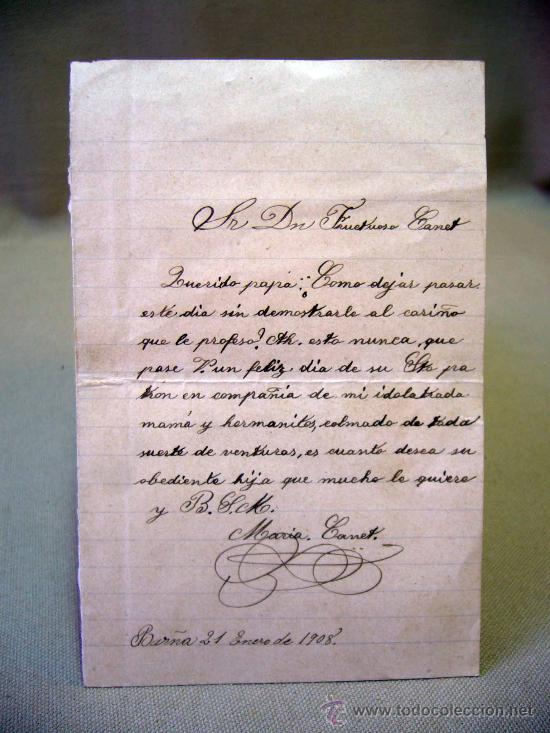 Sr Dn Fructuoso Canet
Querido papá: ¿Como dejar pasar
este dia sin demostrarle al cariño
que le profeso? Ah. esto nunca, que
pase V. un feliz dia de su Sto pa
tron en compañia de mi idolatrada
mamá y hermanitos, colmado de toda
suerte de venturas, es cuanto desea su
obediente hija que mucho le quiere
y B. S. M.
Maria. Canet.
21 Enero de 1908.
todocoleccion
www.todocoleccion.net